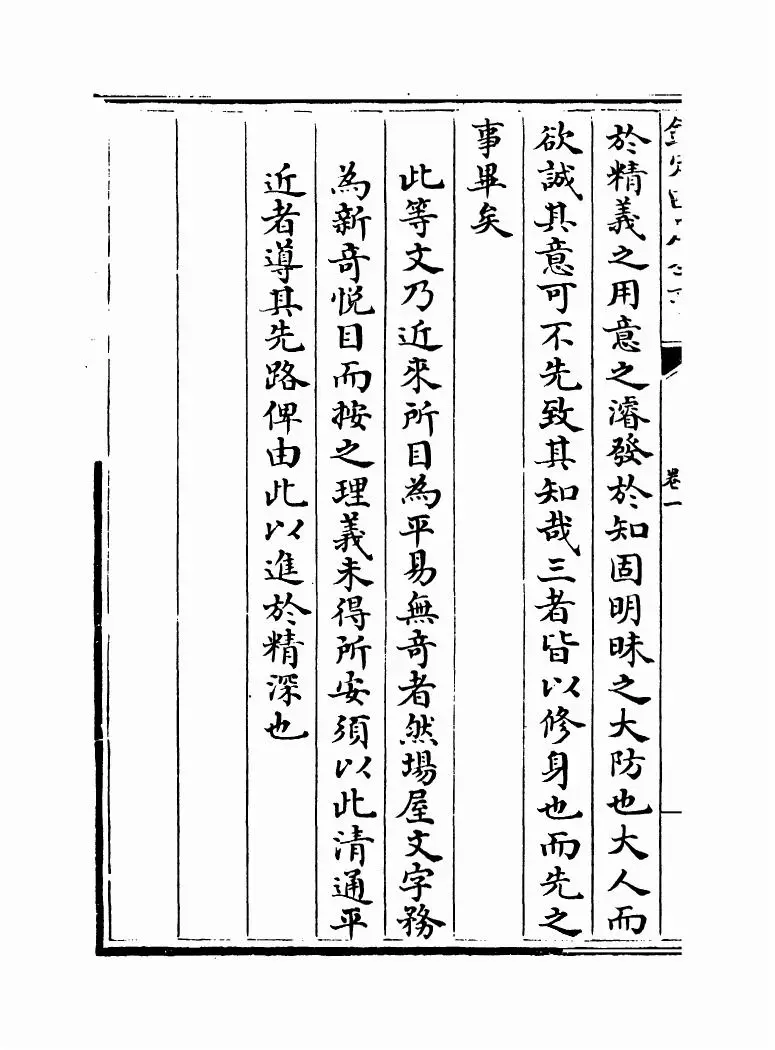 於精義之用意之濬發於知固明昧之大防也大人而
欲誠其意可不先致其知哉三者皆以修身也而先之
事畢矣
此等文乃近來所目為平易無奇者然場屋文字務
為新奇悅目而按之理義未得所安須以此清通平
近者導其先路俾由此以進於精深也
卷一